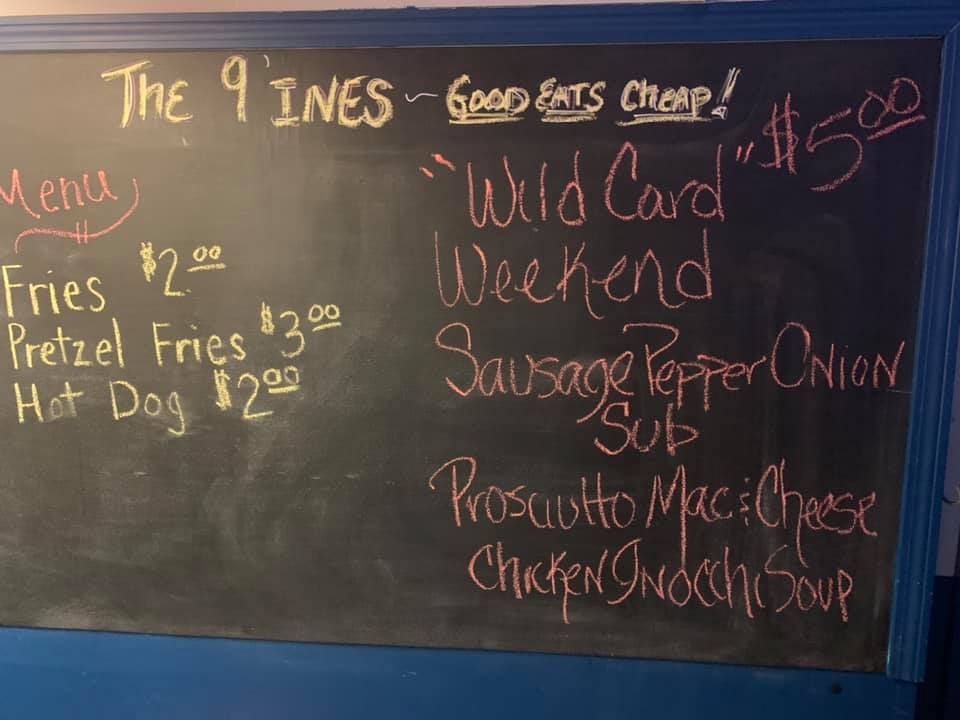 The 9'INES ~ GOOD EATS CHEAP!
Menu
Fries $2.00
Pretzel Fries $3.00
Hot Dog $2.00
"Wild Card" $5.00
Weekend
Sausage Pepper Onion
Sub
Prosciutto Mac & Cheese
Chicken Gnocchi Soup